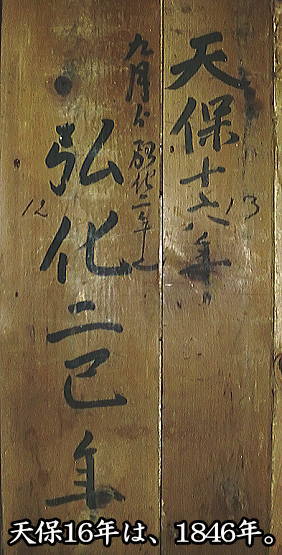 天保十六年
13
九月 化二年
弘化二巳年
12
天保16年は、1846年。